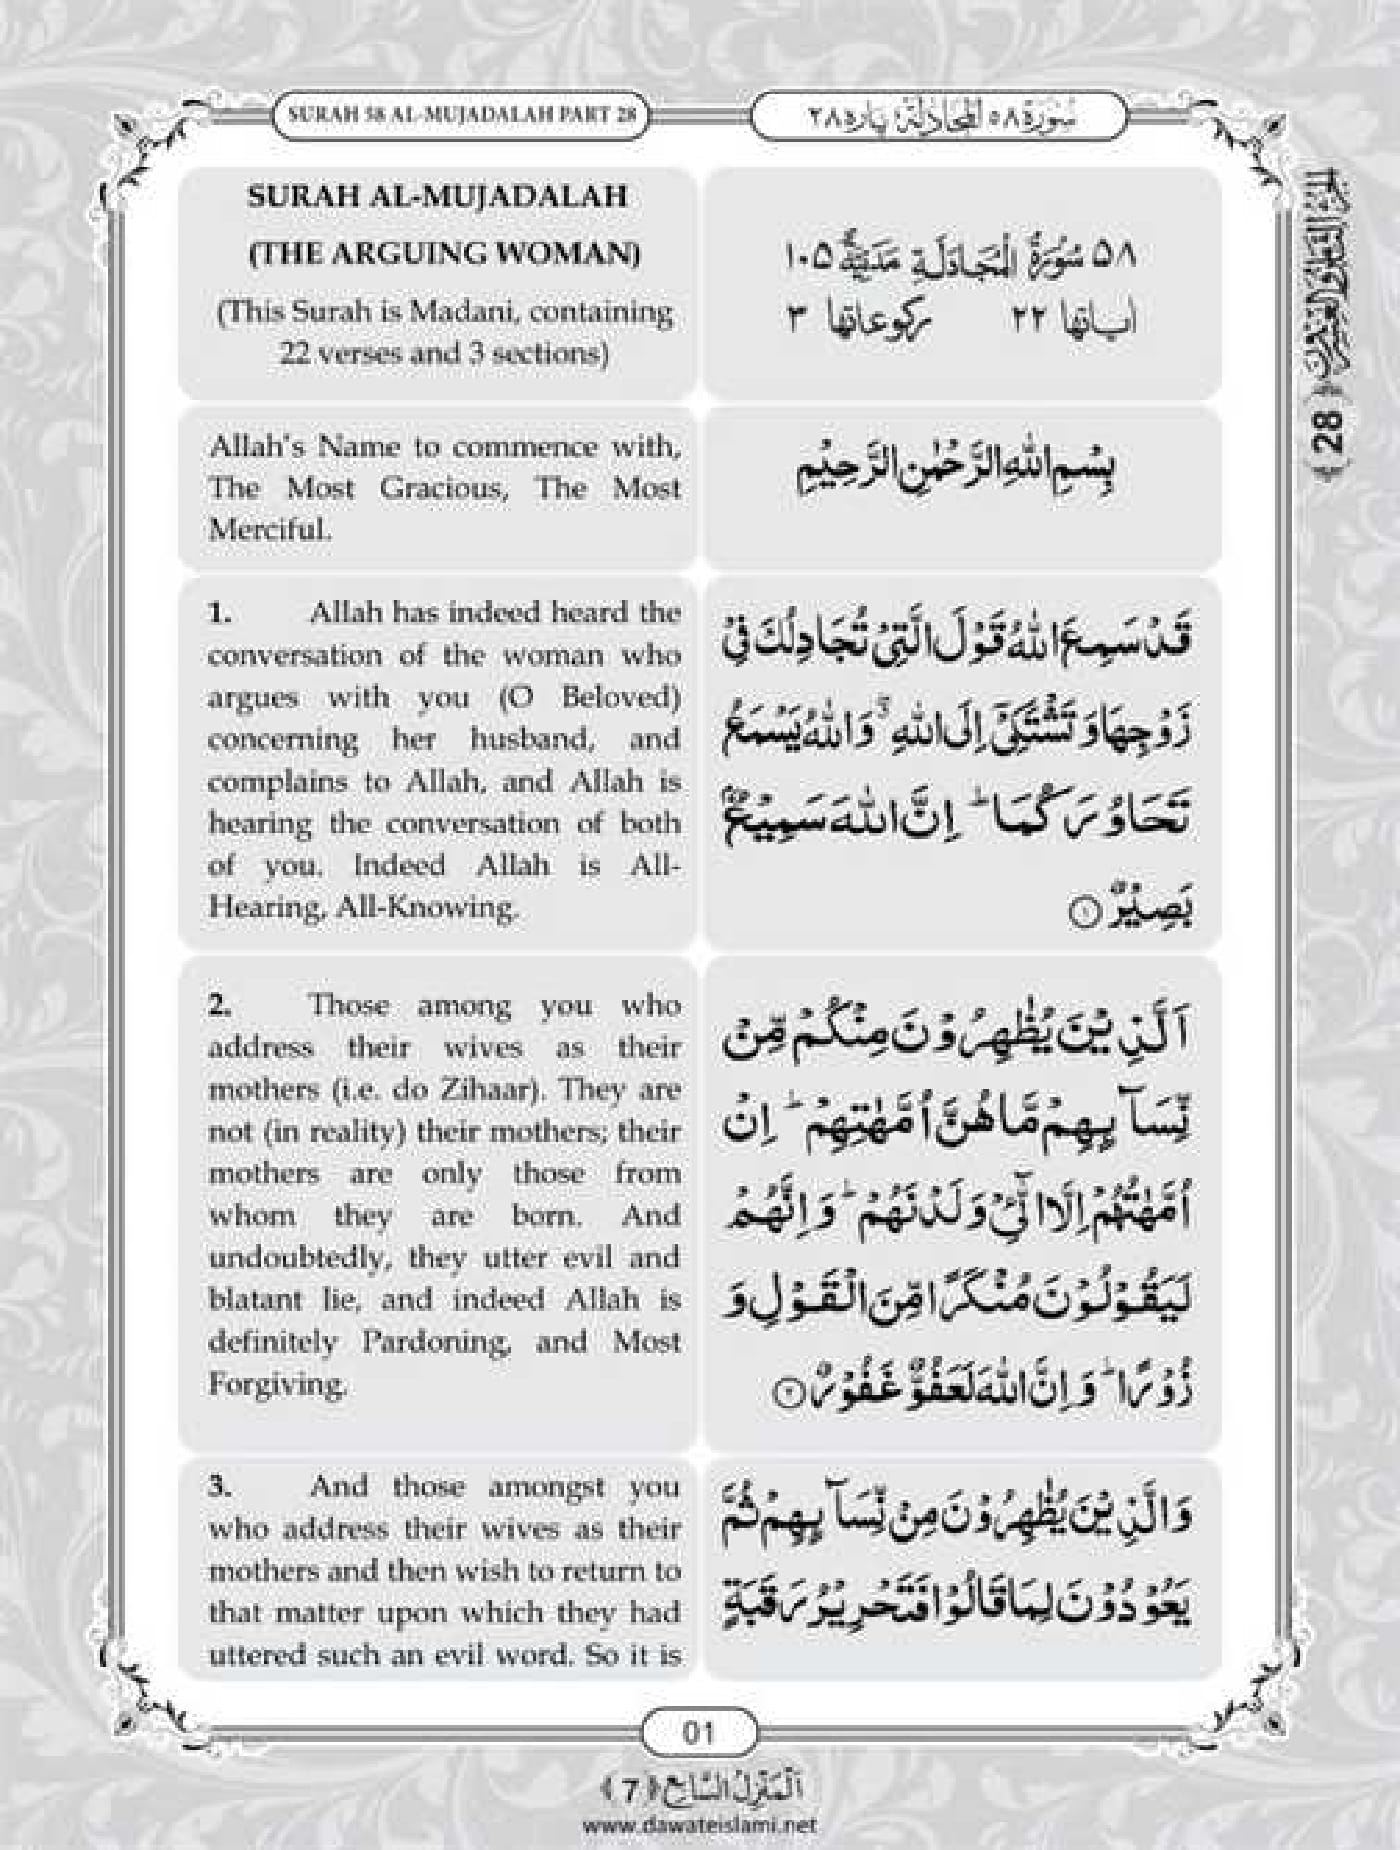 SURAH 58 AL-MUJADALAH PART 28
سُورَة ٥٨ الْمُجَادَلَة: پارہ ٢٨
SURAH AL-MUJADALAH
(THE ARGUING WOMAN)
(This Surah is Madani, containing
22 verses and 3 sections)
٥٨ سُوْرَةُ الْمُجَادَلَةِ مَدَنِيَّةٌ ١٠٥
اٰياتها ٢٢ ركوعاتها ٣
الجزء الثامن والعشرون
﴿ 28 ﴾
Allah's Name to commence with,
The Most Gracious, The Most
Merciful.
بِسْمِ اللهِ الرَّحْمٰنِ الرَّحِيْمِ
1. Allah has indeed heard the
conversation of the woman who
argues with you (O Beloved)
concerning her husband, and
complains to Allah, and Allah is
hearing the conversation of both
of you. Indeed Allah is All-
Hearing, All-Knowing.
قَدْ سَمِعَ اللهُ قَوْلَ الَّتِيْ تُجَادِلُكَ فِيْ
زَوْجِهَا وَ تَشْتَكِيْۤ اِلَى اللهِ ۖۗ وَ اللهُ يَسْمَعُ
تَحَاوُرَكُمَا ؕ اِنَّ اللهَ سَمِيْعٌۢ
بَصِيْرٌ ۝۱
2. Those among you who
address their wives as their
mothers (i.e. do Zihaar). They are
not (in reality) their mothers; their
mothers are only those from
whom they are born. And
undoubtedly, they utter evil and
blatant lie, and indeed Allah is
definitely Pardoning, and Most
Forgiving.
اَلَّذِيْنَ يُظٰهِرُوْنَ مِنْكُمْ مِّنْ
نِّسَآىِٕهِمْ مَّا هُنَّ اُمَّهٰتِهِمْ ؕ اِنْ
اُمَّهٰتُهُمْ اِلَّا الّٰٓـِٔيْ وَلَدْنَهُمْ ؕ وَ اِنَّهُمْ
لَيَقُوْلُوْنَ مُنْكَرًا مِّنَ الْقَوْلِ وَ
زُوْرًا ؕ وَ اِنَّ اللهَ لَعَفُوٌّ غَفُوْرٌ ۝۲
3. And those amongst you
who address their wives as their
mothers and then wish to return to
that matter upon which they had
uttered such an evil word. So it is
وَ الَّذِيْنَ يُظٰهِرُوْنَ مِنْ نِّسَآىِٕهِمْ ثُمَّ
يَعُوْدُوْنَ لِمَا قَالُوْا فَتَحْرِيْرُ رَقَبَةٍ
01
اَلْمَنْزِلُ السَّابِع ﴿ 7 ﴾
www.dawateislami.net